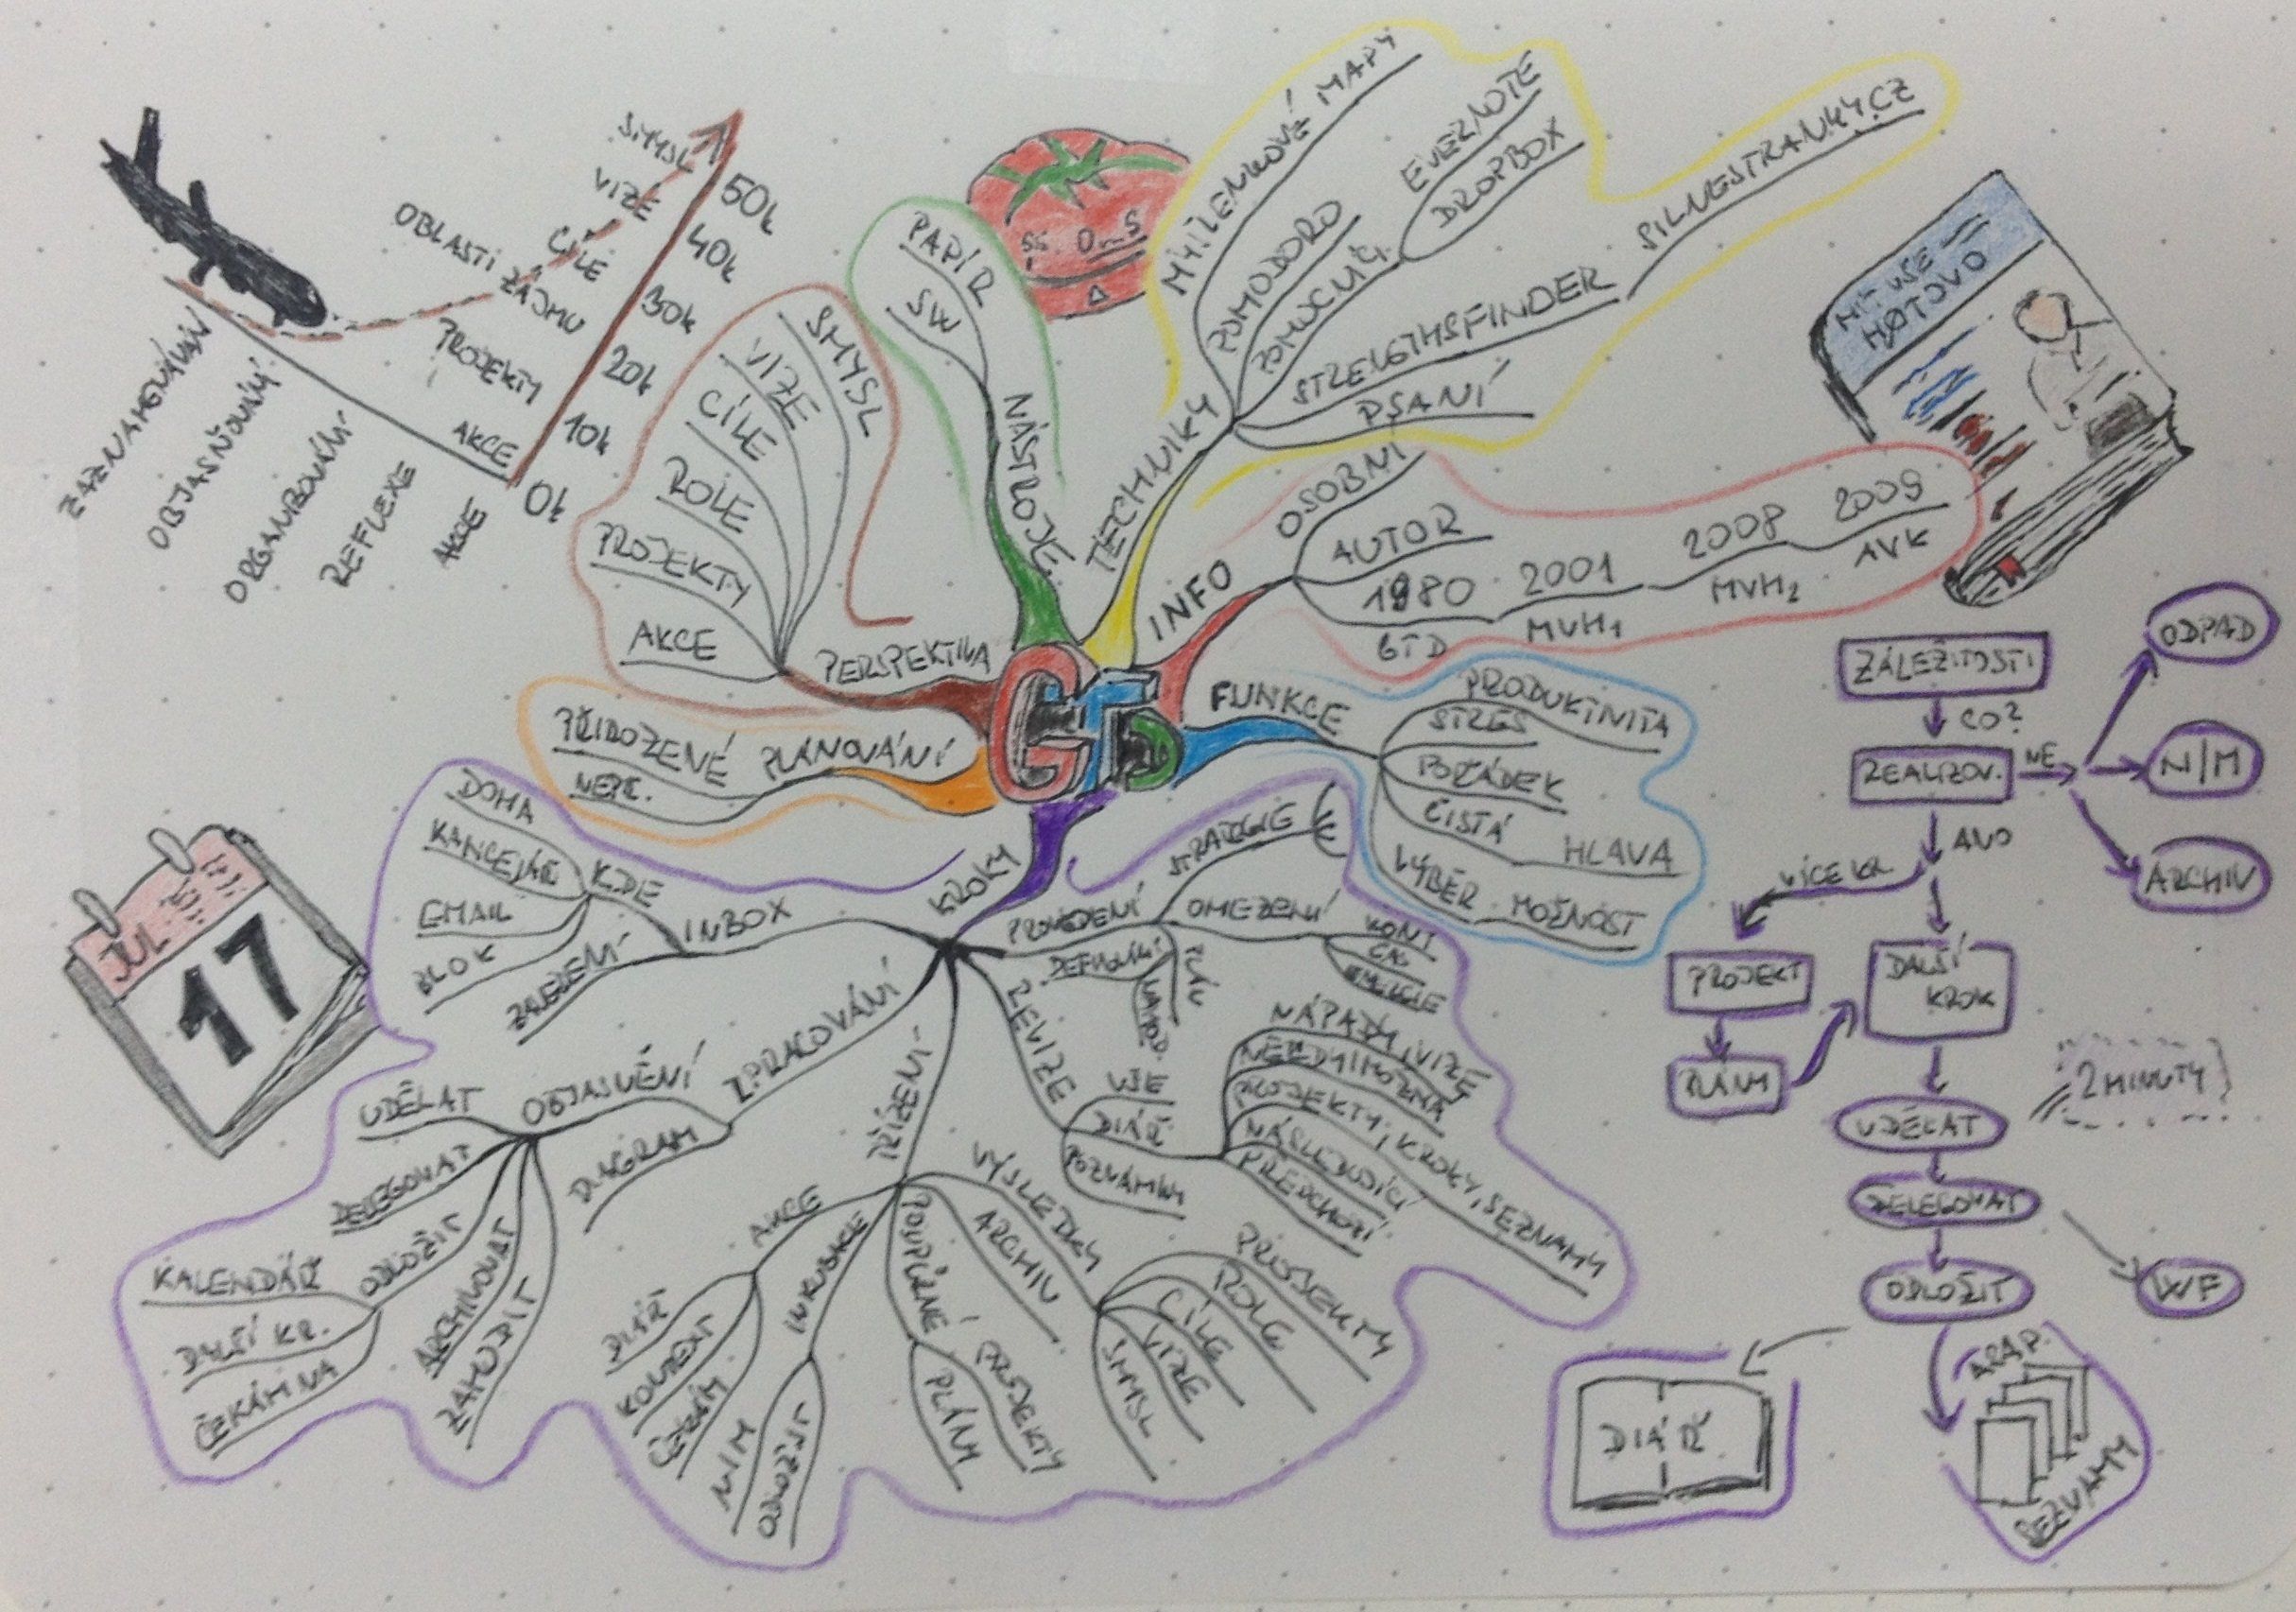 SMYSL
VIZE
CÍLE
OBLASTI ZÁJMU
PROJEKTY
AKCE
50k
40k
30k
20k
10k
0k
ZAZNAMENÁVÁNÍ
OBJASŇOVÁNÍ
ORGANIZOVÁNÍ
REFLEXE
AKCE
GTD
PERSPEKTIVA
SMYSL
VIZE
CÍLE
ROLE
PROJEKTY
AKCE
NÁSTROJE
PAPÍR
SW
TECHNIKY
MYŠLENKOVÉ MAPY
POMODORO
POMOCNÍCI
EVERNOTE
DROPBOX
STRENGTHSFINDER
SILNESTRANKY.CZ
PSANÍ
INFO
OSOBNÍ
AUTOR
1980
2001
2008
2009
GTD
MVH1
MVH2
AVK
MÍT VŠE
HOTOVO
FUNKCE
PRODUKTIVITA
STRES
POŘÁDEK
ČISTÁ HLAVA
VÝBĚR MOŽNOST
PLÁNOVÁNÍ
PŘIROZENÉ
NEPŘ.
KROKY
INBOX
KDE
DOMA
KANCELÁŘ
EMAIL
BLOK
ZPRACOVÁNÍ
OBJASNĚNÍ
UDĚLAT
DELEGOVAT
ODLOŽIT
KALENDÁŘ
DALŠÍ KR.
ČEKÁM NA
ARCHIVOVAT
ZAHODIT
DIAGRAM
TŘÍZENÍ
AKCE
DIÁŘ
KONTEXT
ČEKÁM
INKUBACE
N/M
ODLOŽIT
PODPŮRNÉ
PLÁNY
PROJEKTY
ARCHIV
VÝSLEDKY
PROJEKTY
ROLE
CÍLE
VIZE
SMYSL
REVIZE
VŠE
DIÁŘ
POZNÁMKY
NÁPADY, VIZE
NĚKDY/MOŽNÁ
PROJEKTY, KROKY, SEZNAMY
NÁSLEDUJÍCÍ
PŘEDCHOZÍ
PROVEDENÍ
STRATEGIE
OMEZENÍ
KONT
ČAS
ENERGIE
PLÁN
JUL
17
ZÁLEŽITOSTI
CO?
REALIZOV.
NE
ODPAD
N/M
ARCHIV
ANO
VÍCE KR.
PROJEKT
DALŠÍ
KROK
PLÁNY
2 MINUTY
UDĚLAT
DELEGOVAT
WF
ODLOŽIT
DIÁŘ
SEZNAMY